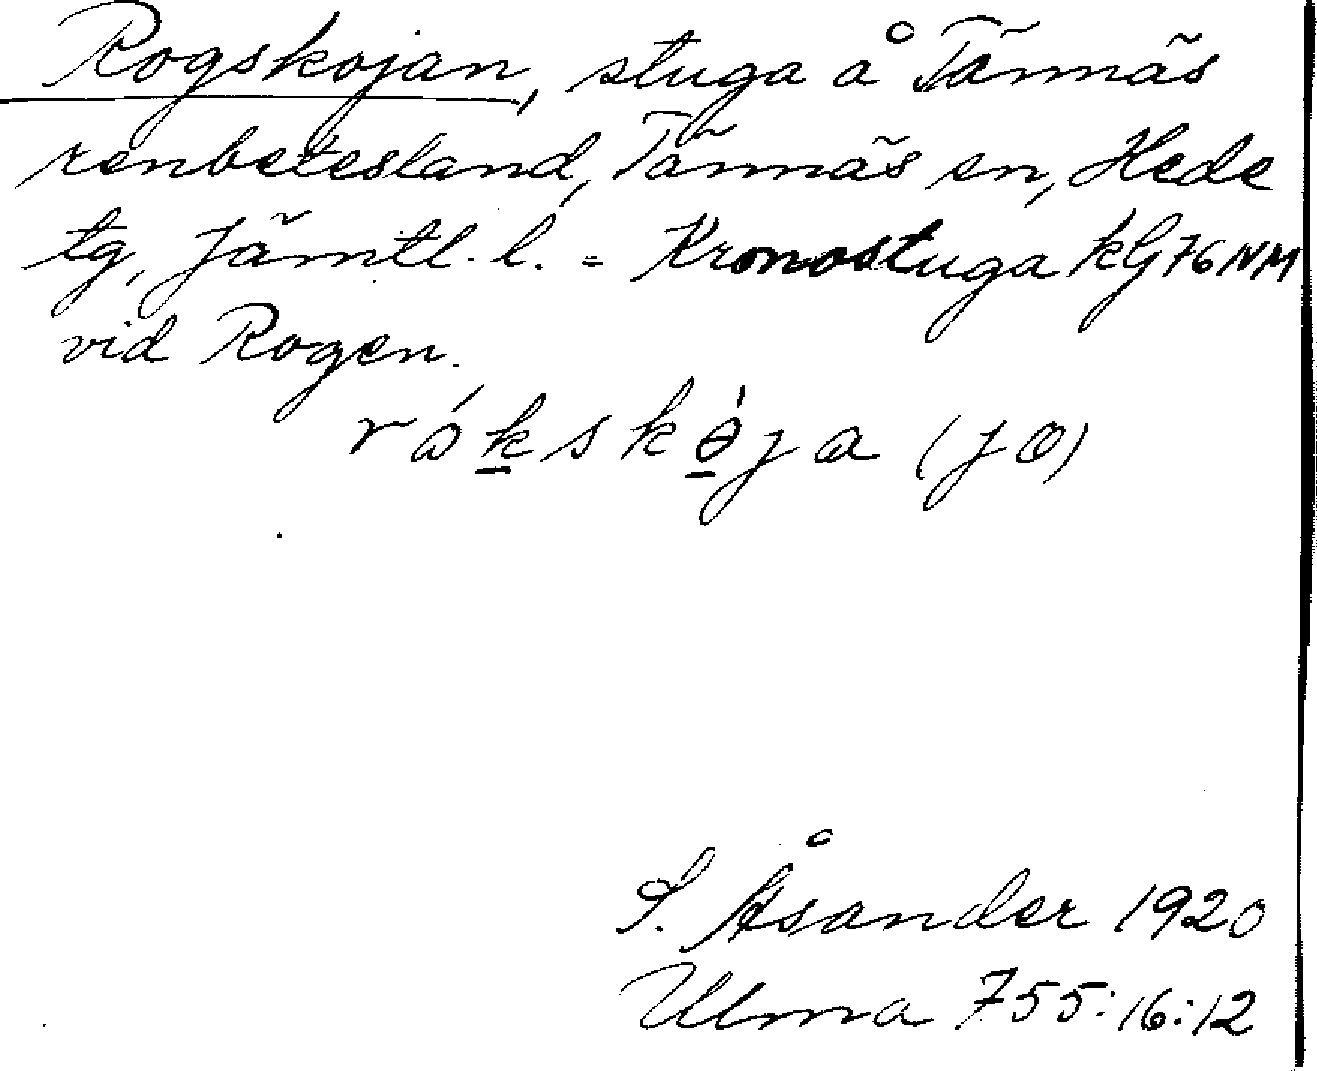 Rogskojan, stuga å Tännäs
renbetesland, Tännäs sn, Hede
tg, Jämtl. l. = Kronostuga kG 76 NM
vid Rogen.
rókskö́ja (JO)
S. Åsander 1920
Ulma 755:16:12